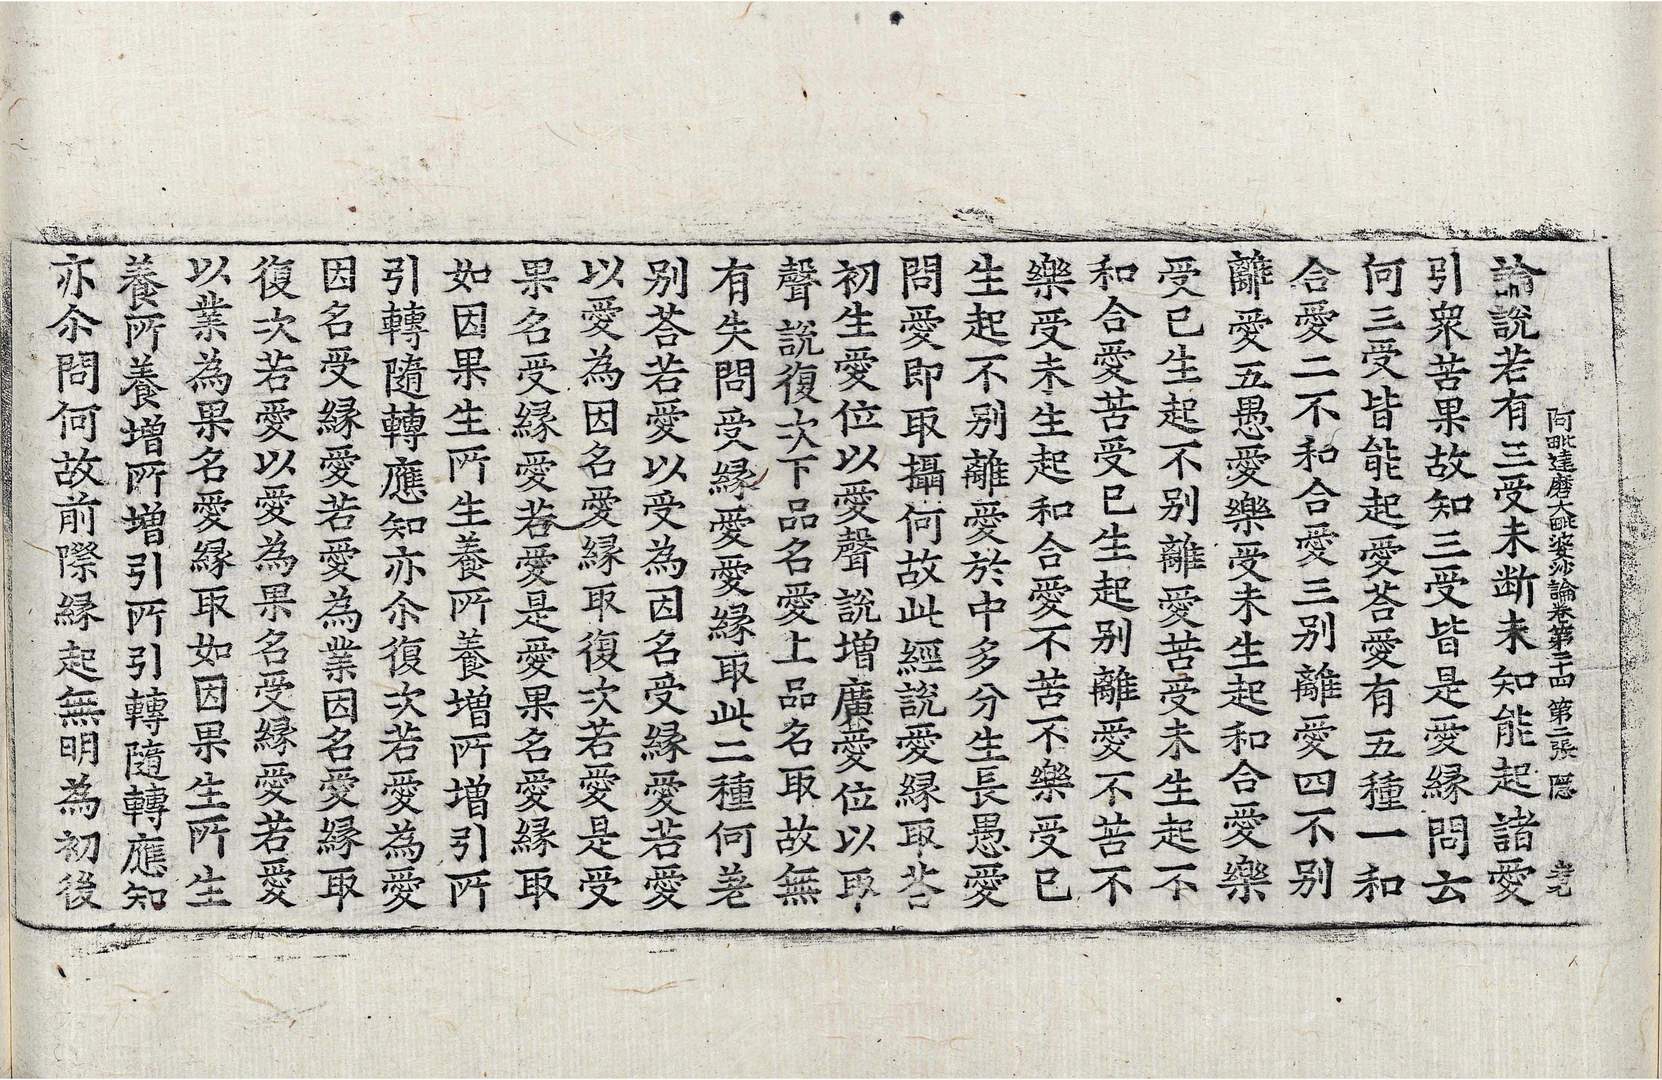 阿毗達磨大毗婆沙論卷第二十四 第二張 隱
論說若有三受未断未知能起諸愛
引衆苦果故知三受皆是愛縁問云
何三受皆能起愛荅愛有五種一和
合愛二不和合愛三别離愛四不别
離愛五愚愛樂受未生起和合愛樂
受已生起不别離愛苦受未生起不
和合愛苦受已生起别離愛不苦不
樂受未生起和合愛不苦不樂受已
生起不别離愛於中多分生長愚愛
問愛即取攝何故此經説愛縁取荅
初生愛位以愛聲說增廣愛位以取
聲説復次下品名愛上品名取故無
有失問受縁愛愛縁取此二種何差
别荅若愛以受為因名受縁愛若愛
以愛為因名愛縁取復次若愛是受
果名受縁愛若愛是愛果名愛縁取
如因果生所生養所養增所增引所
引轉隨轉應知亦尒復次若愛為愛
因名受縁愛若愛為業因名愛縁取
復次若愛以愛為果名受縁愛若愛
以業為果名愛縁取如因果生所生
養所養增所增引所引轉隨轉應知
亦尒問何故前際縁起無明為初後